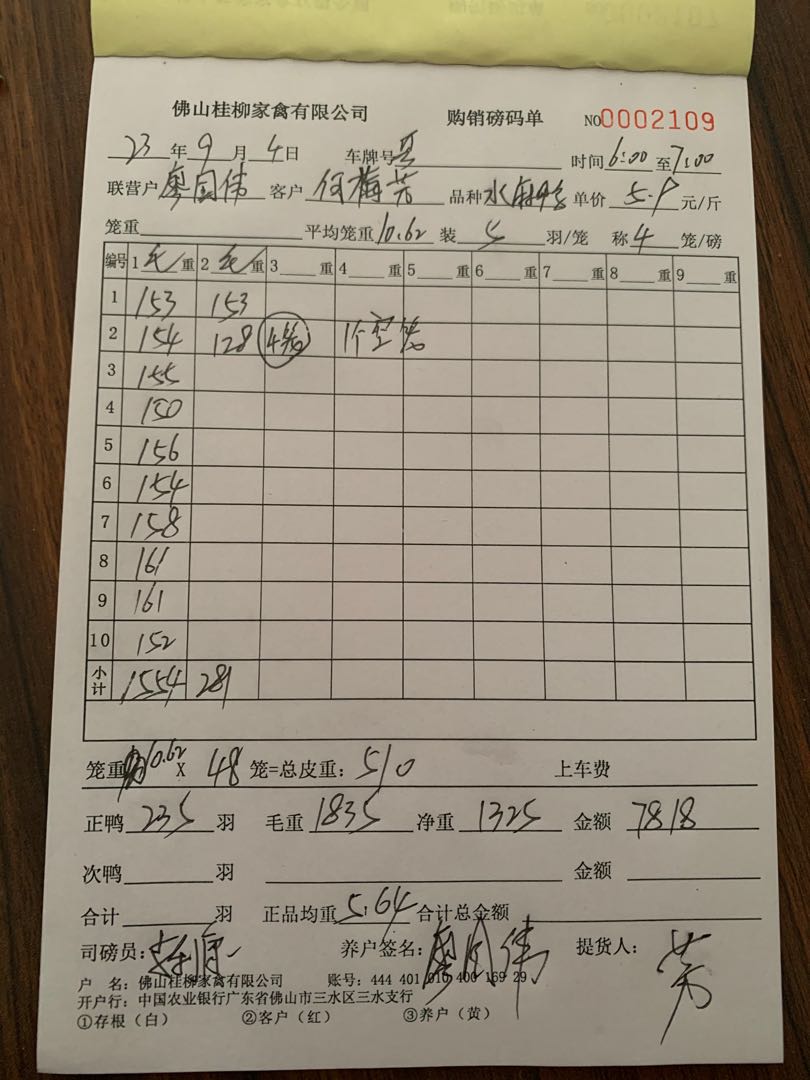 佛山桂柳家禽有限公司 购销磅码单 NO0002109
23年9月4日 车牌号 时间6:00至7:00
联营户廖国伟 客户何梅芳 品种水 单价5.9元/斤
笼重 平均笼重10.62 装5羽/笼 称4笼/磅
编号 1毛/重 2毛/重 3 重 4 重 5 重 6 重 7 重 8 重 9 重
1 153 153
2 154 128 4笼 1个空笼
3 155
4 150
5 156
6 154
7 158
8 161
9 161
10 152
小计 1554 281
笼重10.62X 48笼=总皮重:510 上车费
正鸭235羽 毛重1835净重1325 金额7818
次鸭 羽 金额
合计 羽 正品均重5.64合计总金额
司磅员: 养户签名:廖国伟 提货人:芳
户 名:佛山桂柳家禽有限公司 账号:444 401 010 400 169 29
开户行:中国农业银行广东省佛山市三水区三水支行
①存根(白) ②客户(红) ③养户(黄)